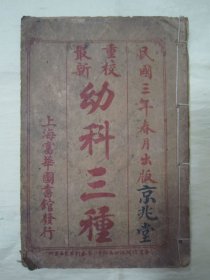 民國三年春月出版
京兆堂
重校
最新
幼科三種
上海富華圖書館發行